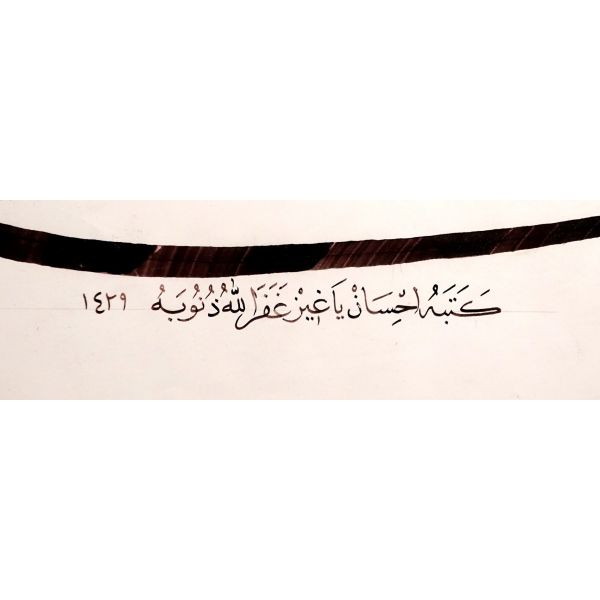 كَتَبَهُ احْسَانْ يَاغِيزْ غَفَرَ اللّٰهُ ذُنُوبَهُ ١٤٢٩